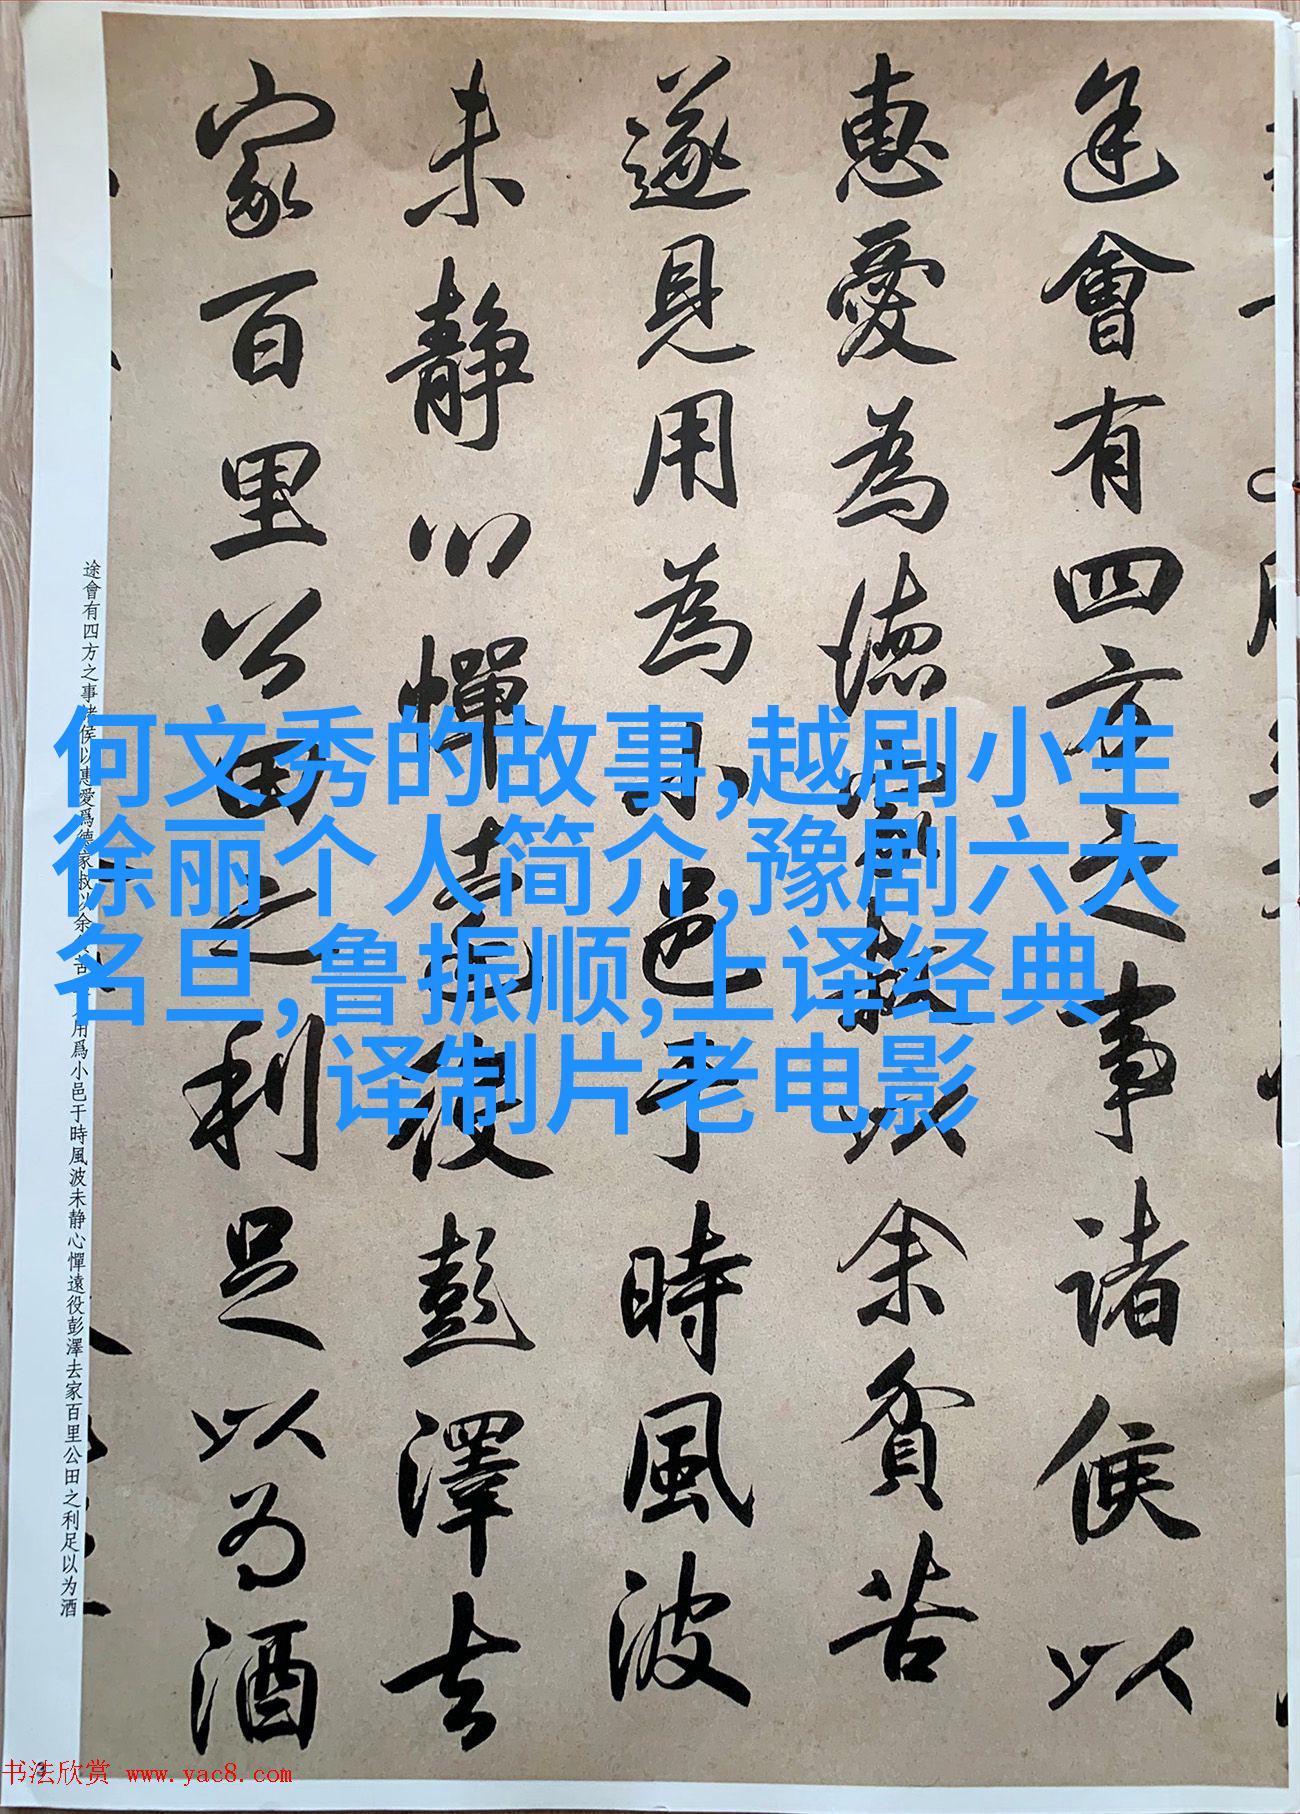 途會有四方之事諸侯以
惠愛為德家叔以余貧苦
遂見用為小邑于時風波
未静心憚遠役彭澤去
家百里公田之利足以为酒
途會有四方之事諸侯以惠愛爲德家叔以余苦用爲小邑于時風波未静心憚遠役彭澤去家百里公田之利足以为酒
何文秀的故事,越剧小生
徐丽个人简介,豫剧六大
名旦,鲁振顺,上译经典
译制片老电影
3
书法欣赏 www.yac8.com